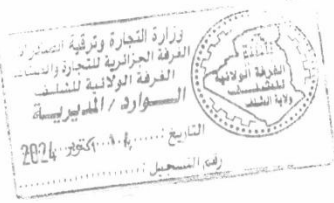 وزارة التجارة وترقية الصادرات
الغرفة الجزائرية للتجارة والصناعة
الغرفة الولائية للشلف
الـــوارد / المديريـــة
التاريخ : أكتوبر 2024
رقم التسجيل :
الغرفة الولائية
للشلف
ولاية الشلف